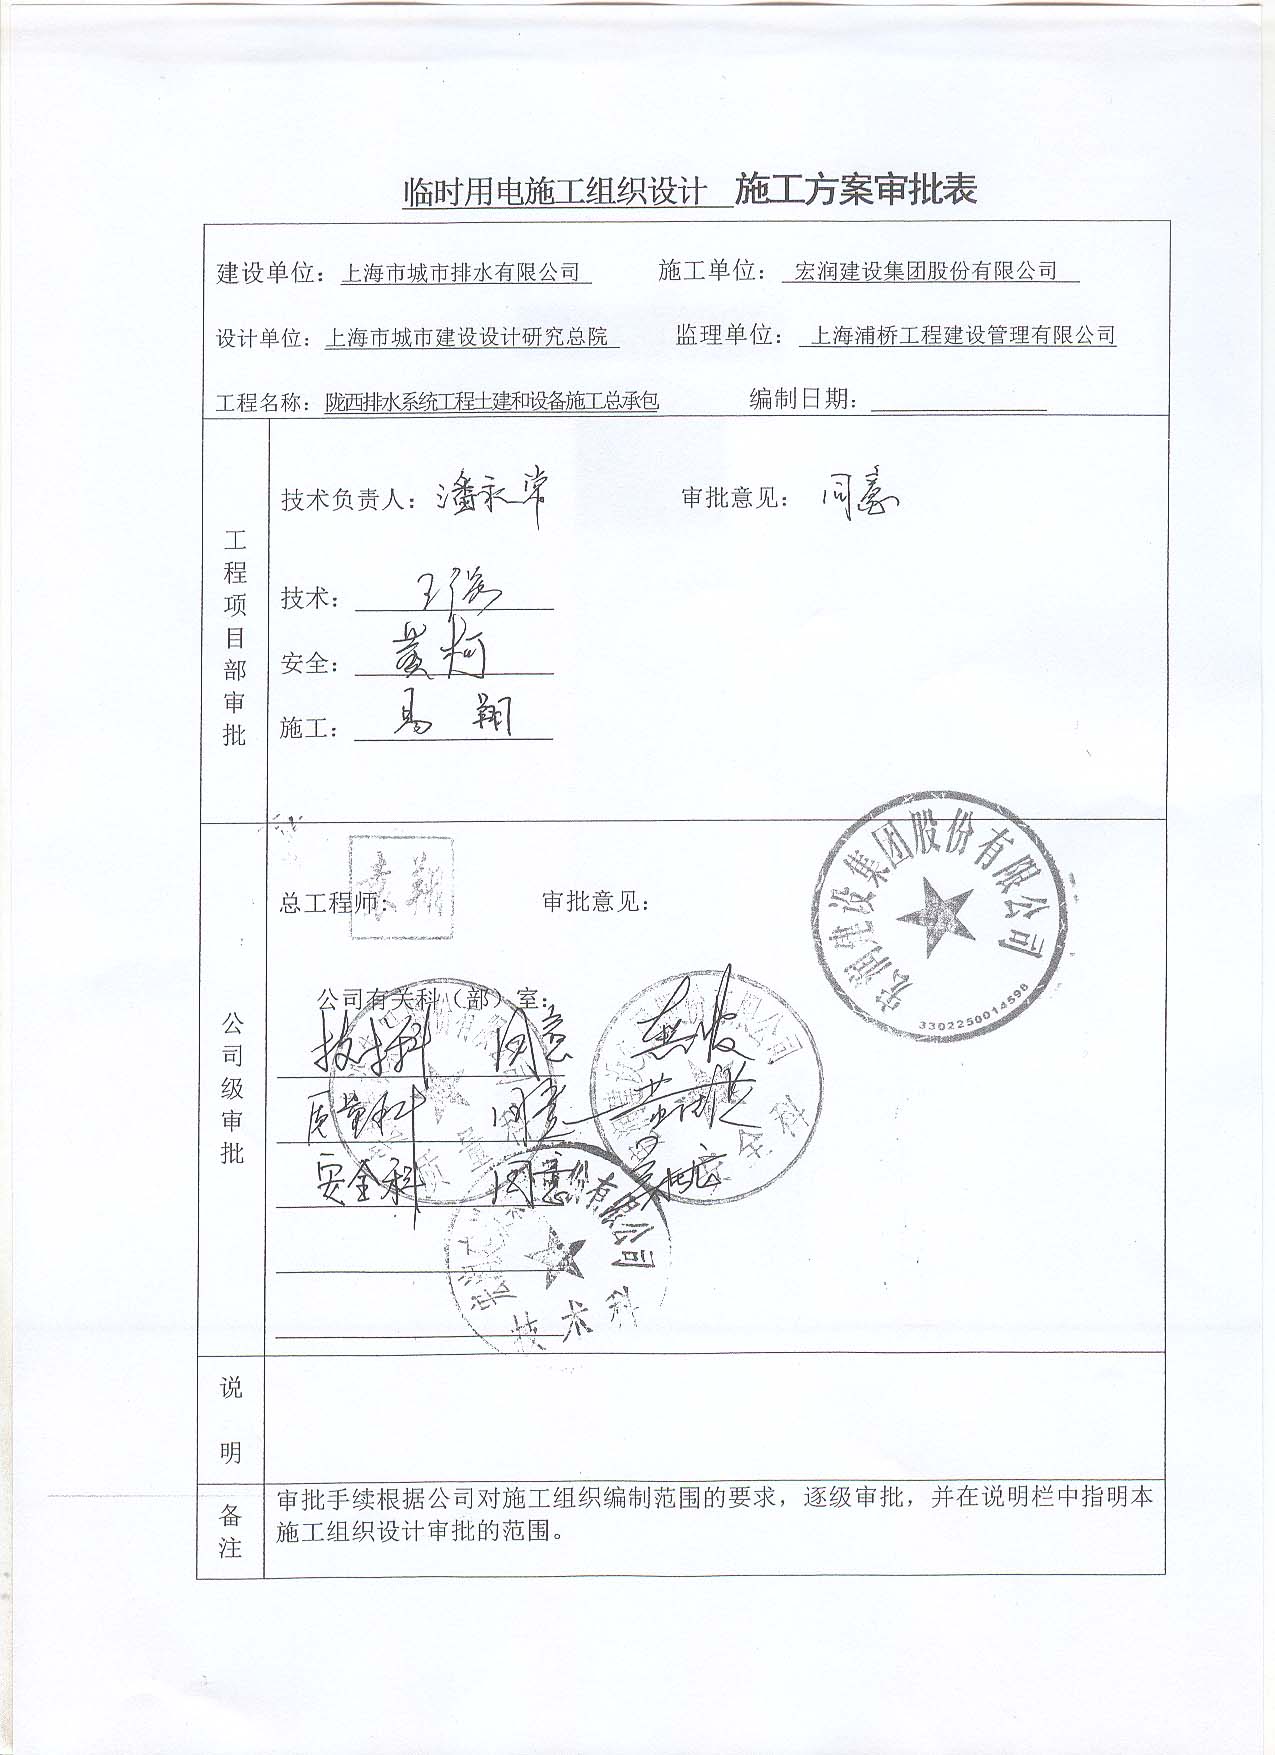 临时用电施工组织设计 施工方案审批表
建设单位：上海市城市排水有限公司 施工单位：宏润建设集团股份有限公司
设计单位：上海市城市建设设计研究总院 监理单位：上海浦桥工程建设管理有限公司
工程名称：陇西排水系统工程土建和设备施工总承包 编制日期：
工程项目部审批
技术负责人：潘永常 审批意见：同意
技术：王
安全：黄柯
施工：马翔
公司级审批
总工程师： 袁翔 审批意见：
宏润建设集团股份有限公司
3302250014598
公司有关科（部）室：
技术科 同意
质量科 同意 黄
安全科 同意
质量科
安全科
有限公司
技术科
说明
备注
审批手续根据公司对施工组织编制范围的要求，逐级审批，并在说明栏中指明本
施工组织设计审批的范围。